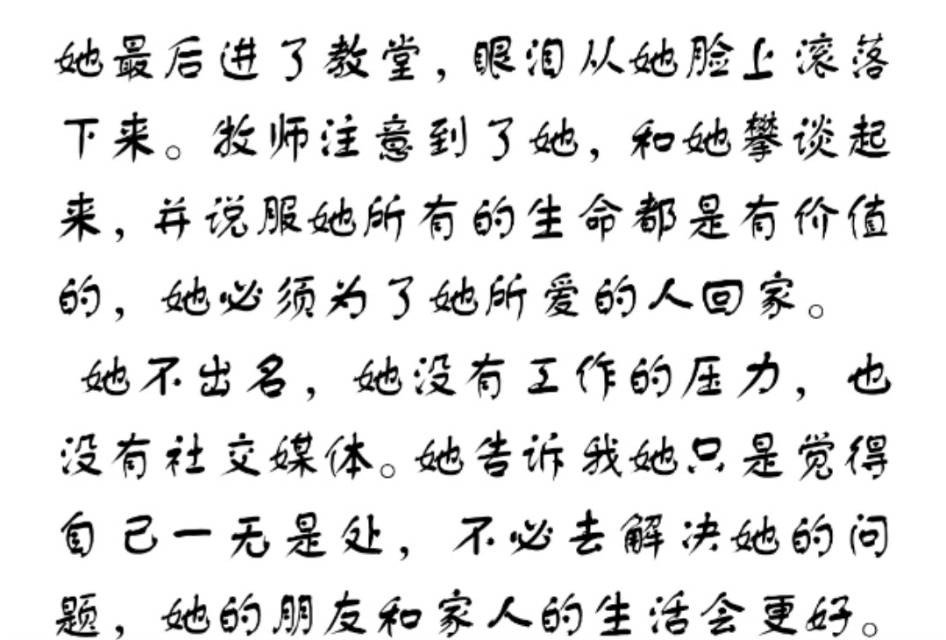 她最后进了教堂，眼泪从她脸上滚落
下来。牧师注意到了她，和她攀谈起
来，并说服她所有的生命都是有价值
的，她必须为了她所爱的人回家。
她不出名，她没有工作的压力，也
没有社交媒体。她告诉我她只是觉得
自己一无是处，不必去解决她的问
题，她的朋友和家人的生活会更好。